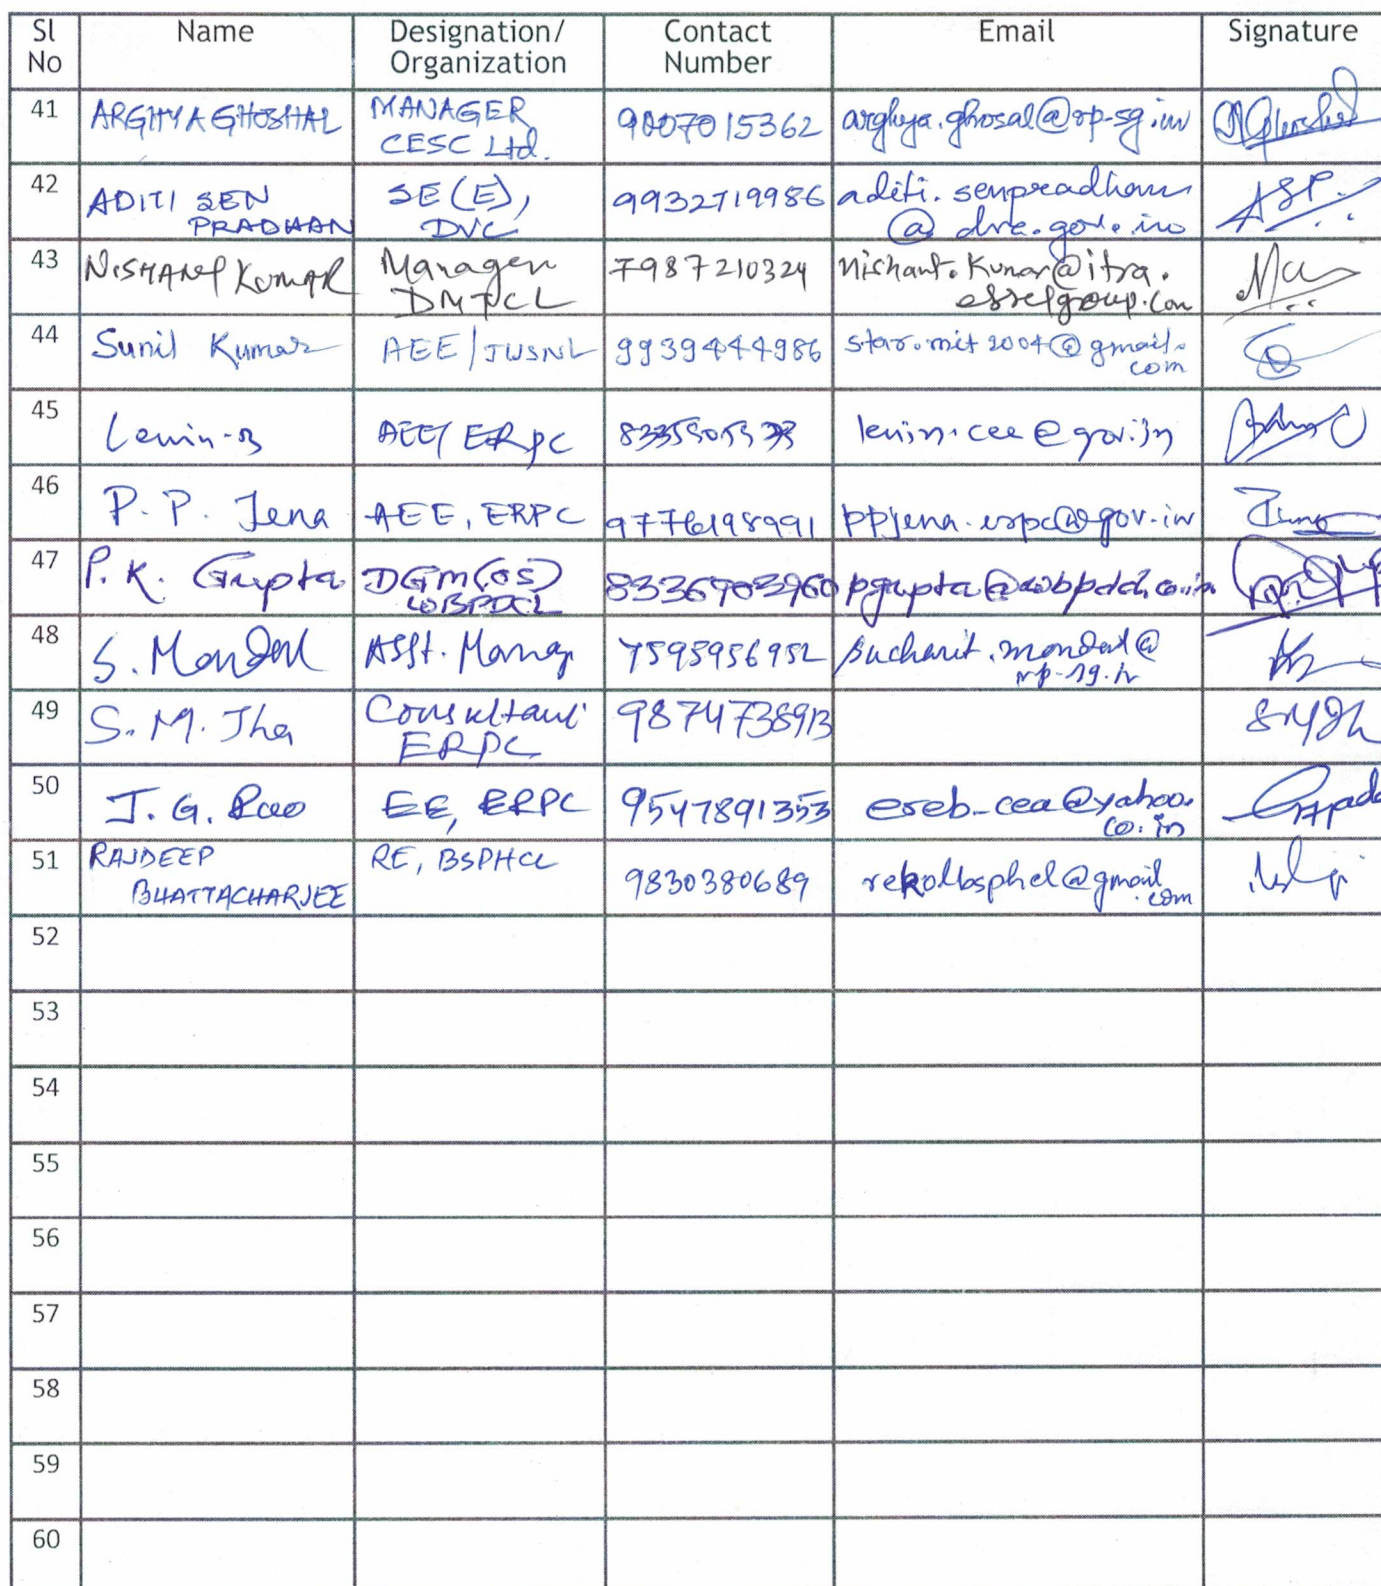 Sl No Name Designation/ Organization Contact Number Email Signature
41 ARGHYA GHOSHAL MANAGER CESC Ltd. 9007015362 arghya.ghosal@rp-sg.in
42 ADITI SEN PRADHAN SE(E), DVC 9932719986 aditi.senpradhan @ dvc.gov.in
43 NISHANT KUMAR Manager DMTCL 7987210324 nishant.kumar@itra. esselgroup.com
44 Sunil Kumar AEE/JUSNL 9939444986 star.mit2004@gmail. com
45 Lenin-B AEE/ ERPC lenin.cea@gov.in
46 P. P. Jena AEE, ERPC 9776198991 ppjena.erpc@gov.in
47 P.K. Gupta DGM(OS) WBPDCL 
48 S. Mondal Asst. Manag 7595956952 sucharit.mondal@ rp-sg.in
49 S. M. Jha Consultant ERPC 9874738913
50 J. G. Rao EE, ERPC 9547891353 ereb_cea@yahoo. co.in
51 RAJDEEP BHATTACHARJEE RE, BSPHCL 9830380689 rekolbsphcl@gmail .com
52
53
54
55
56
57
58
59
60